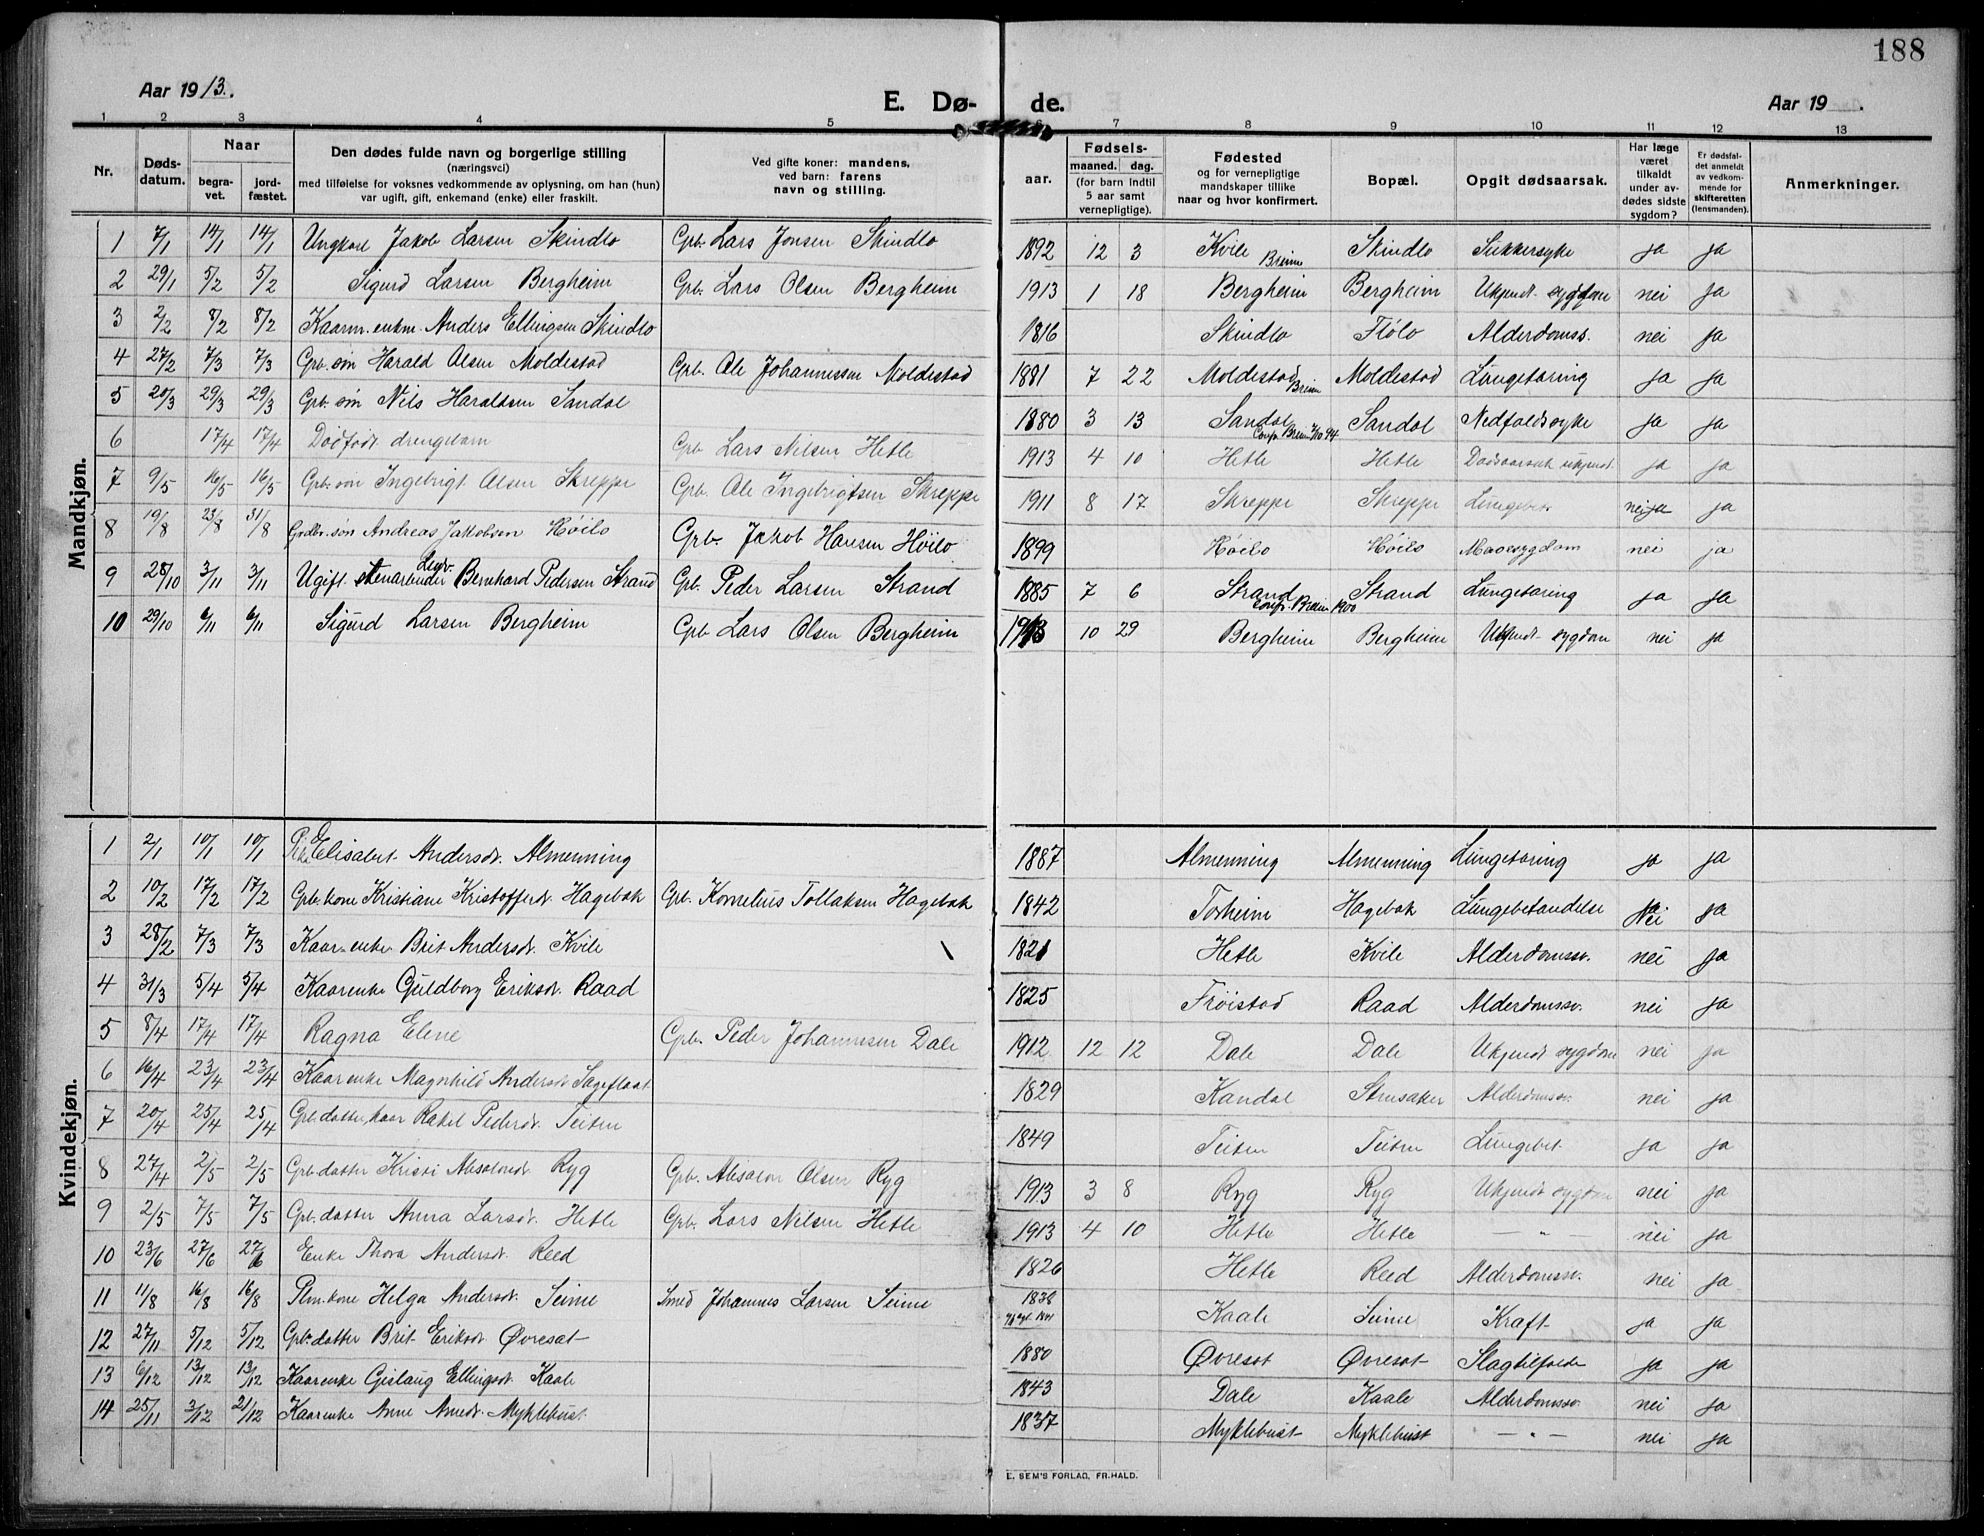 188
Aar 1913.
E. Dø-
de.
Aar 19 .
1 2 3 4 5 6 7 8 9 10 11 12 13
Nr.
Døds-datum.
Naar
begra-vet.
jord-fæstet.
Den dødes fulde navn og borgerlige stilling
(næringsvei)
med tilføielse for voksnes vedkommende av oplysning, om han (hun)
var ugift, gift, enkemand (enke) eller fraskilt.
Ved gifte koner: mandens,
ved barn: farens
navn og stilling.
aar.
Fødsels-
maaned. dag.
(for barn indtil
5 aar samt
vernepligtige).
Fødested
og for vernepligtige
mandskaper tillike
naar og hvor konfirmert.
Bopæl.
Opgit dødsaarsak.
Har læge
været
tilkaldt
under av-
dødes sidste
sygdom?
Er dødsfal-
det anmeldt
av vedkom-
mende for
skifteretten
(lensmanden).
Anmerkninger.
Mandkjøn.
1 7/1 14/1 14/1 Ungkarl Jakob Larsen Skindlo Grb. Lars Jonsen Skindlo 1892 12 3 Kvile Breim Skindlo Sukkersyke ja ja
2 29/1 5/2 5/2 Sigurd Larsen Bergheim Grb. Lars Olsen Bergheim 1913 1 18 Bergheim Bergheim Ukjendt sygdom nei ja
3 2/2 8/2 8/2 Kaarm. enkm. Anders Ellingsen Skindlo 1816 Skindlo Flölo Alderdomss. nei ja
4 27/2 7/3 7/3 Grb. søn Harald Olsen Moldestad Grb. Ole Johannessen Moldestad 1881 7 22 Moldestad Breim Moldestad Lungetæring ja ja
5 20/3 29/3 29/3 Grb. søn Nils Haraldsen Sandal 1880 3 13 Sandal Conf. Breim 7/10 94 Sandal Nedfaldssyke ja ja
6 17/4 17/4 Dødfødt drengebarn Grb. Lars Nilsen Hetle 1913 4 10 Hetle Hetle Dødsaarsak ukjendt. ja ja
7 9/5 16/5 16/5 Grb. søn Ingebrigt Olsen Skreppe Grb. Ole Ingebrigtsen Skreppe 1911 8 17 Skreppe Skreppe Lungebet. nei ja ja
8 19/8 23/8 31/8 Grdbr. søn Andreas Jakobsen Høilo Grb. Jakob Hansen Høilo 1899 Høilo Høilo Mavesygdom nei ja
9 28/10 3/11 3/11 Ugift stenarbeider Bernhard Pedersen Strand Grb. Peder Larsen Strand 1885 7 6 Strand Conf. Breim 1900 Strand Lungetæring ja ja
10 29/10 6/11 6/11 Sigurd Larsen Bergheim Grb. Lars Olsen Bergheim 1913 10 29 Bergheim Bergheim Ukjendt sygdom nei ja
Kvindekjøn.
1 2/1 10/1 10/1 Pike Elisabet Andersdt. Almenning 1887 Almenning Almenning Lungetæring ja ja
2 10/2 17/2 17/2 Grb. kone Kristiane Kristofferdt. Hagebak Grb. Kornelius Tollaksen Hagebak 1842 Torheim Hagebak Lungebetændelse ja Nei ja
3 28/2 7/3 7/3 Kaar-enke Brit Andersdt. Kvile 1821 Hetle Kvile Alderdomssv. nei ja
4 31/3 5/4 5/4 Kaarenke Guldborg Eriksdt. Raad 1825 Frøistad Raad Alderdomssv. nei ja
5 8/4 17/4 17/4 Ragna Elene Grb. Peder Johannesen Dale 1912 12 12 Dale Dale Ukjendt sygdom nei ja
6 16/4 23/4 23/4 Kaarenke Magnhild Andersdt. Sageflaat 1829 Kandal Alderdomssv. nei ja
7 20/4 25/4 25/4 Grb. datter, kaar Rakel Pedersdt. Teiten 1849 Teiten Teiten Lungebet. ja ja
8 27/4 2/5 2/5 Grb. datter Kristi Absalonsdt. Ryg Grb. Absalon Olsen Ryg 1913 3 8 Ryg Ryg Ukjendt sygdom nei ja
9 2/5 7/5 7/5 Grb. datter Anna Larsdt. Hetle Grb. Lars Nilsen Hetle 1913 4 10 Hetle Hetle — " — nei ja
10 23/6 27/6 27/6 Enke Thora Andersdt. Reed 1826 Hetle Reed Alderdomssv. nei ja
11 11/8 16/8 16/8 Plm. kone Helga Andersdt. Seime Smed Johannes Larsen Seime 1836 Kaale Seime Kraft ja ja
12 27/11 5/12 5/12 Grb. datter Brit Eriksdt. Øvresat 1880 Øvresat Øvresat Slagtilfælde ja ja
13 6/12 13/12 13/12 Kaarenke Gislaug Ellingsdt. Kaale 1843 Dale Kaale Alderdomssv. nei ja
14 25/11 3/12 21/12 Kaarenke Anne Arnedt. Myklebust. 1837 Myklebust Myklebust — " — nei ja
E. SEM'S FORLAG, FR.HALD.